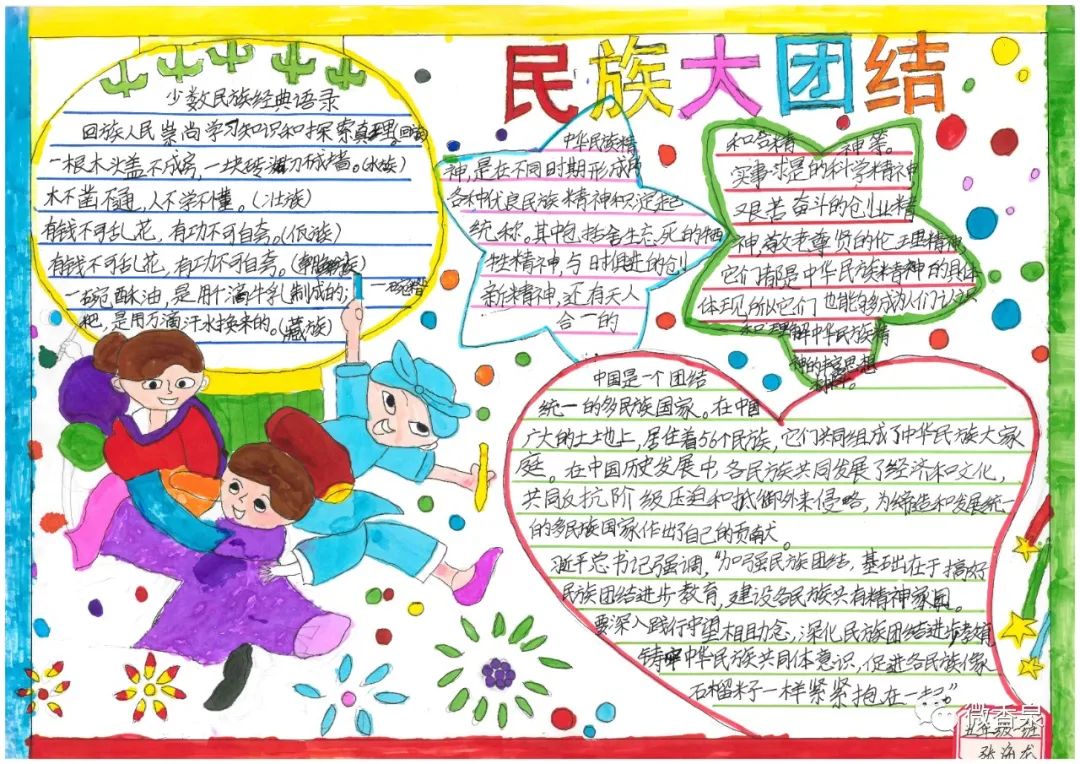 民族大团结
少数民族经典语录
回族人民崇尚学习知识和探索真理。回族
一根木头盖不成房,一块砖砌不成墙。(水族)
木不凿不通,人不学不懂。(壮族)
有钱不可乱花,有功不可自夸。(佤族)
有钱不可乱花,有功不可自夸。
一碗酥油,是用千滴牛乳制成的;一碗糌
粑,是用万滴汗水换来的。(藏族)
中华民族精
神,是在不同时期形成的
各种优良民族精神积淀起
统称。其中包括舍生忘死的牺
牲精神,与时俱进的创
新精神,还有天人
合一的
和合精神等。
实事求是的科学精神
艰苦奋斗的创业精
神,敬老尊贤的伦理精神
它们都是中华民族精神的具体
体现所以它们也能够成为人们认识
和理解中华民族精
神的丰富思想
中国是一个团结
统一的多民族国家。在中国
广大的土土地上,居住着56个民族,它们共同组成了中华民族大家
庭。在中国历史发展中,各民族共同发展了经济和文化,
共同反抗阶级压迫和抵御外来侵略,为缔造和发展统一
的多民族国家作出了自己的贡献。
习近平总书记强调,"加强民族团结,基础在于搞好
民族团结进步教育,建设各民族共有精神家园。
要深入践行守望相助念,深化民族团结进步教育
铸牢中华民族共同体意识,促进各民族像
石榴籽一样紧紧抱在一起"
微香泉
五年级一班